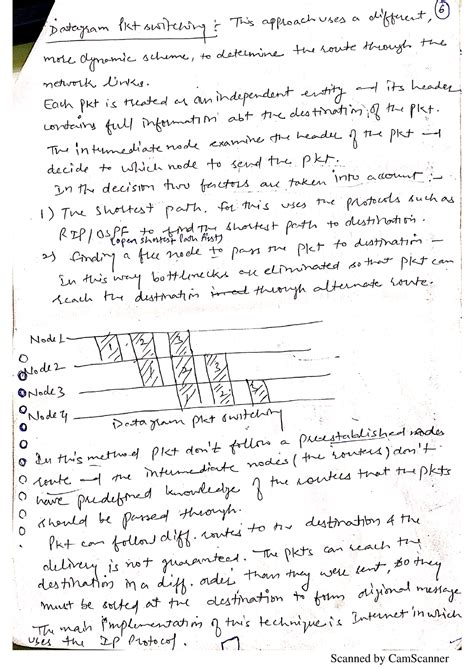 6
Datagram Pkt switching :- This approach uses a different,
more dynamic scheme, to determine the route through the
network links.
Each pkt is treated as an independent entity and its header
contains full information abt the destination of the pkt.
The intermediate node examine the header of the pkt and
decide to which node to send the pkt.
In the decision two factors are taken into account :-
1) The shortest path. for this uses the protocols such as
RIP/OSPF to find the shortest path to destination.
(open shortest path first)
2) finding a free node to pass the pkt to destination -
In this way bottlenecks are eliminated so that pkt can
reach the destination through alternate route.
Node 1
1 2 3
Node 2
1 2 3
Node 3
1 2 3
Node 4
Datagram pkt switching
In this method pkt don't follow a preestablished nodes
route and the intermediate nodes (the routers) don't
have predefined knowledge of the routes that the pkts
should be passed through.
Pkt can follow diff. routes to the destination & the
delivery is not guaranteed. The pkts can reach the
destination in a diff. order than they were sent, so they
must be sorted at the destination to form original message
The main implementation of this technique is Internet in which
uses the IP Protocol.
Scanned by CamScanner